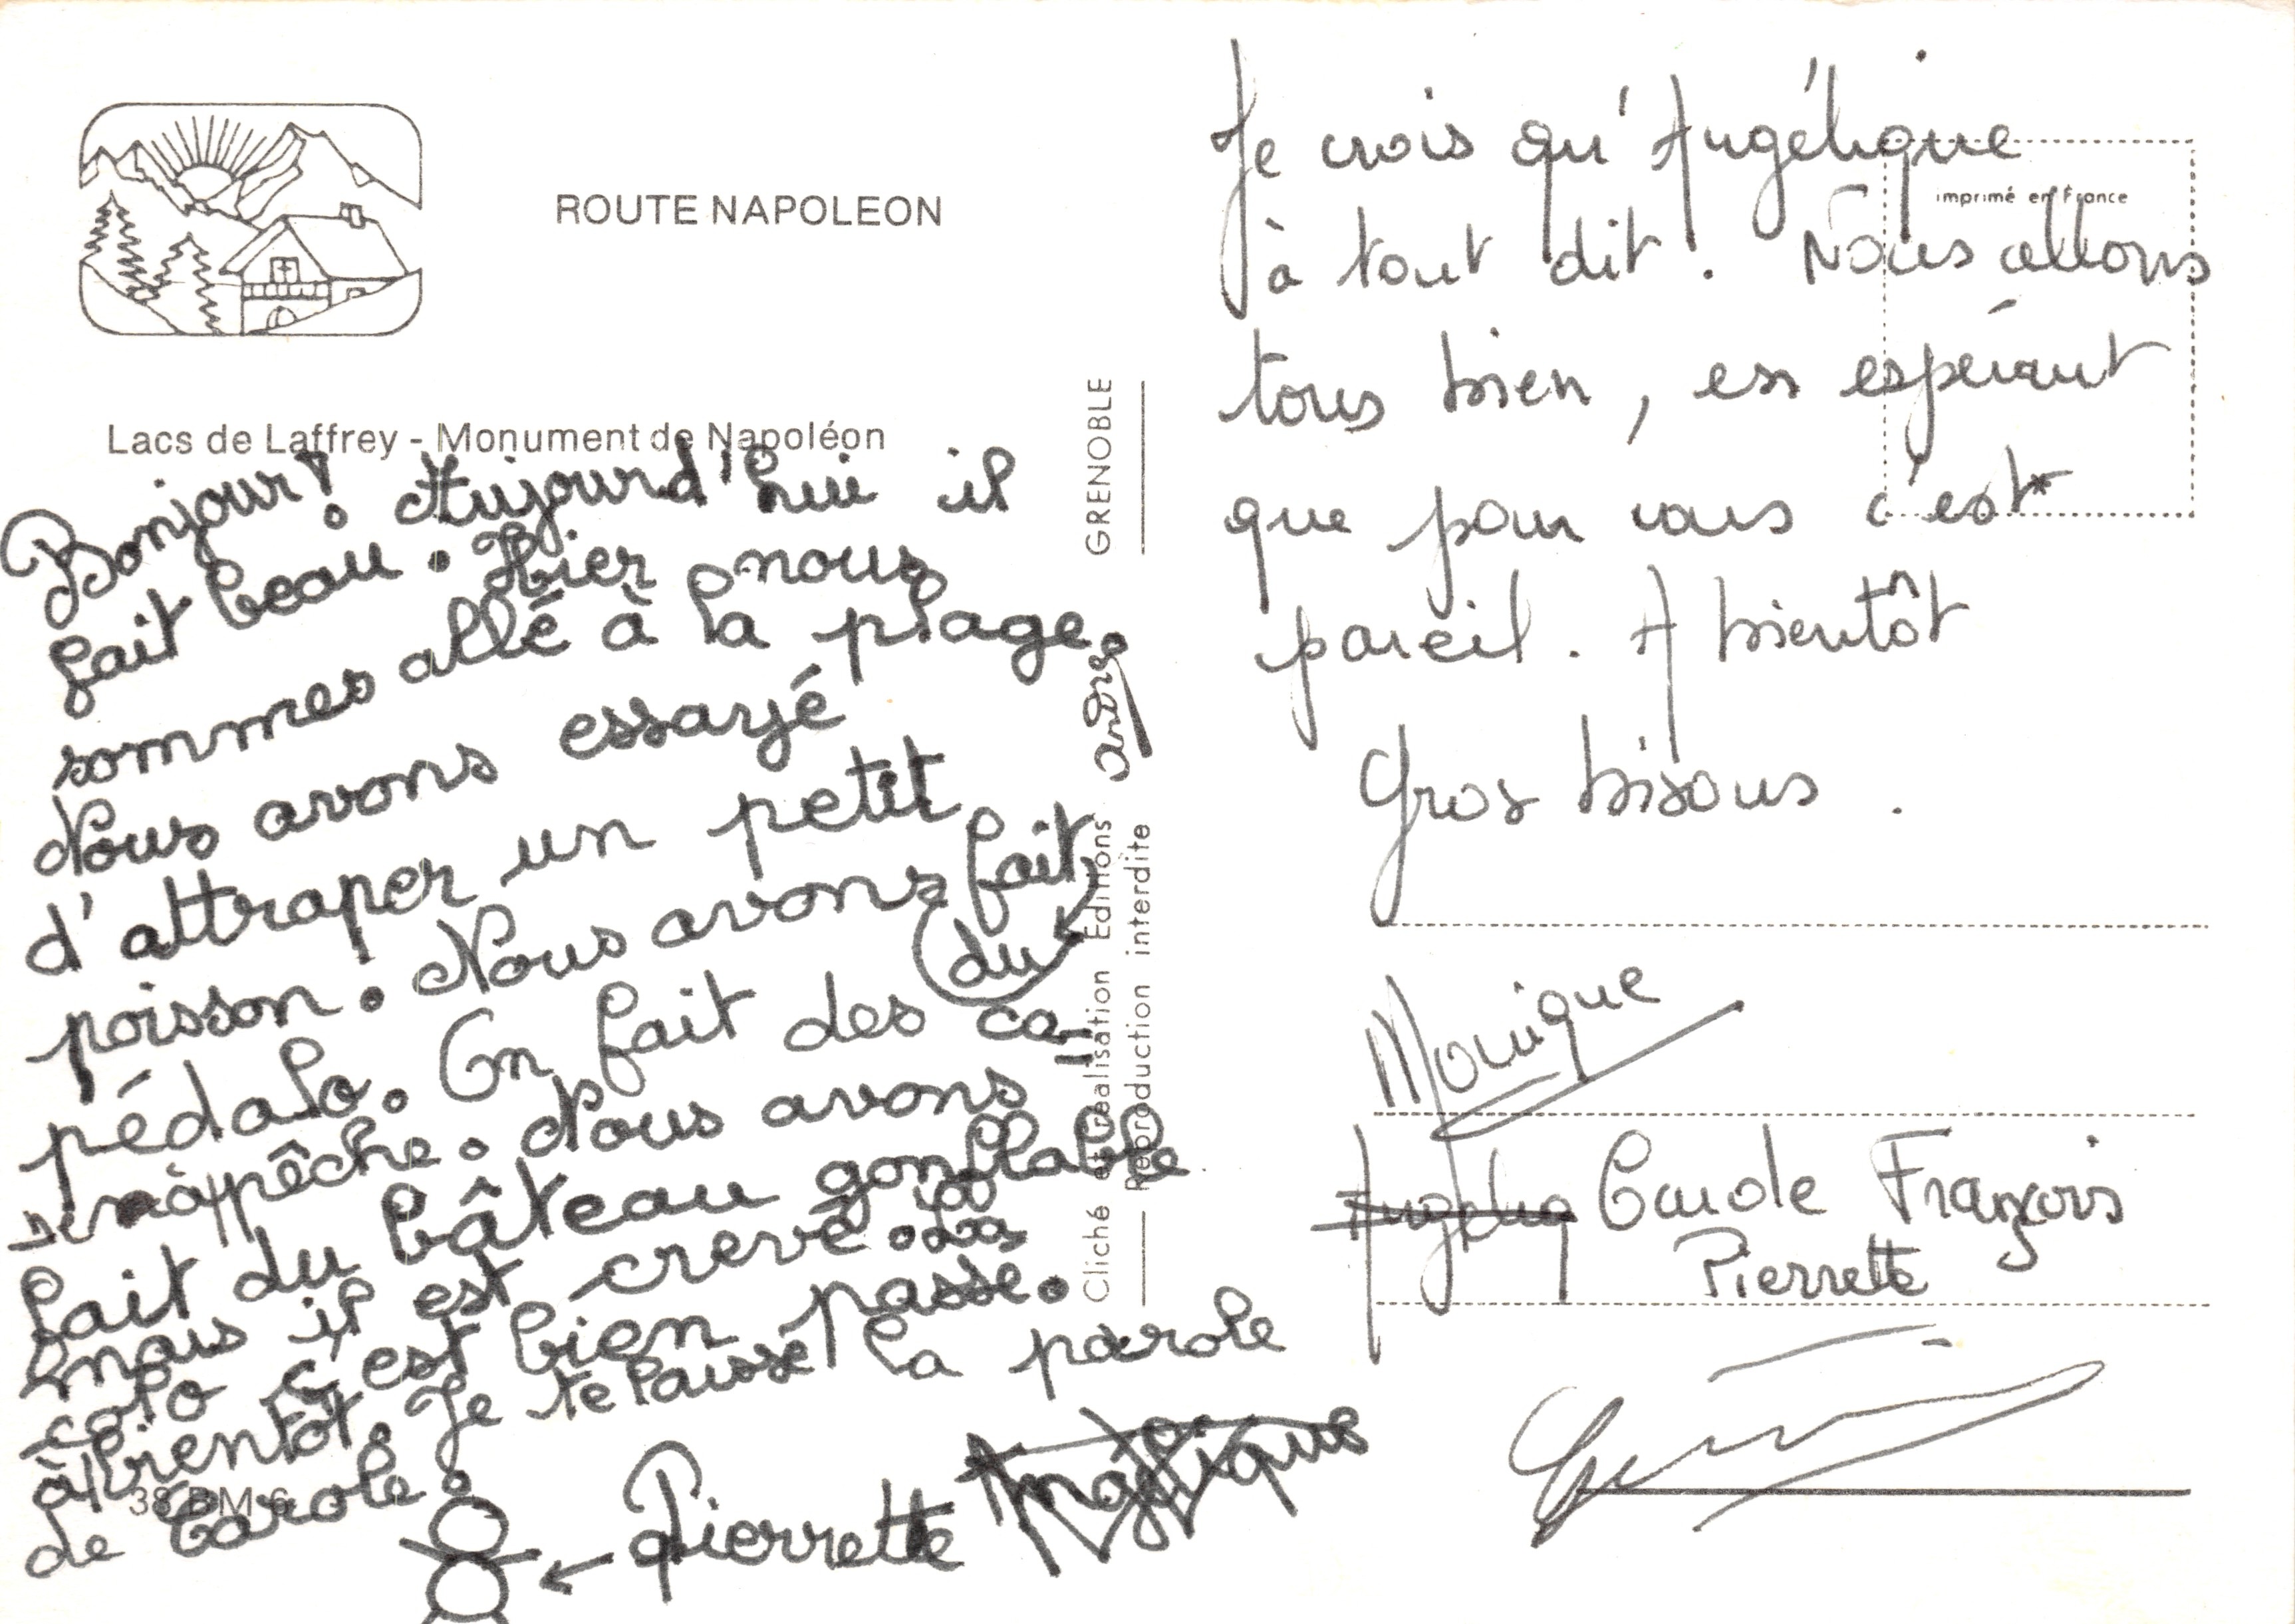 ROUTE NAPOLEON
Lacs de Laffrey - Monument de Napoléon
Bonjour! Aujourd'hui il
fait beau. Hier nous
sommes allé à la plage.
Nous avons essayé
d'attraper un petit
poisson. Nous avons fait
du
pédalo. On fait des ca-
à pêche. Nous avons
fait du bâteau gonflable
mais il est crevé. La
colo c'est bien passé.
à bientôt. Je te laisse la parole
de Carole.
38 BM 6
← Pierrette Angélique
GRENOBLE
andré
Cliché et réalisation Editions
Reproduction interdite
imprimé en France
Je crois qu'Angélique
à tout dit. Nous allons
tous bien, en espérant
que pour vous c'est*
pareil. A bientôt
Gros bisous.
Monique
Angéliq Carole François
Pierrette